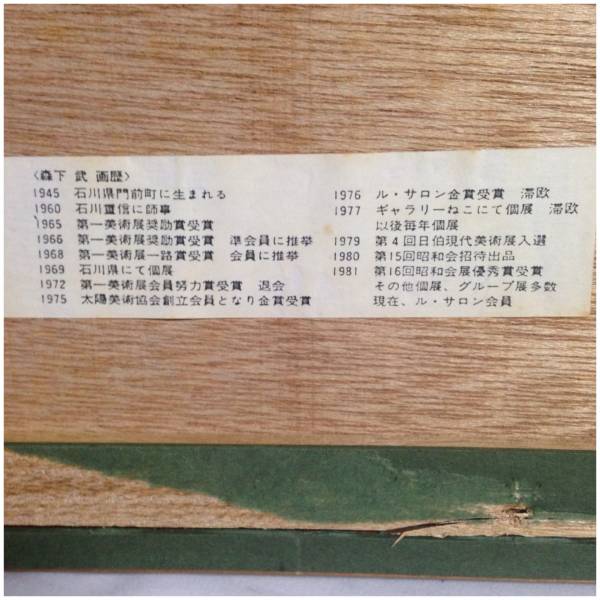 〈森下 武 画歴〉
1945 石川県門前町に生まれる
1960 石川重信に師事
1965 第一美術展奨励賞受賞
1966 第一美術展奨励賞受賞 準会員に推挙
1968 第一美術展一路賞受賞 会員に推挙
1969 石川県にて個展
1972 第一美術展会員努力賞受賞 退会
1975 太陽美術協会創立会員となり金賞受賞
1976 ル・サロン金賞受賞 滞欧
1977 ギャラリーねこにて個展 滞欧
以後毎年個展
1979 第4回日伯現代美術展入選
1980 第15回昭和会招待出品
1981 第16回昭和会展優秀賞受賞
その他個展、グループ展多数
現在、ル・サロン会員